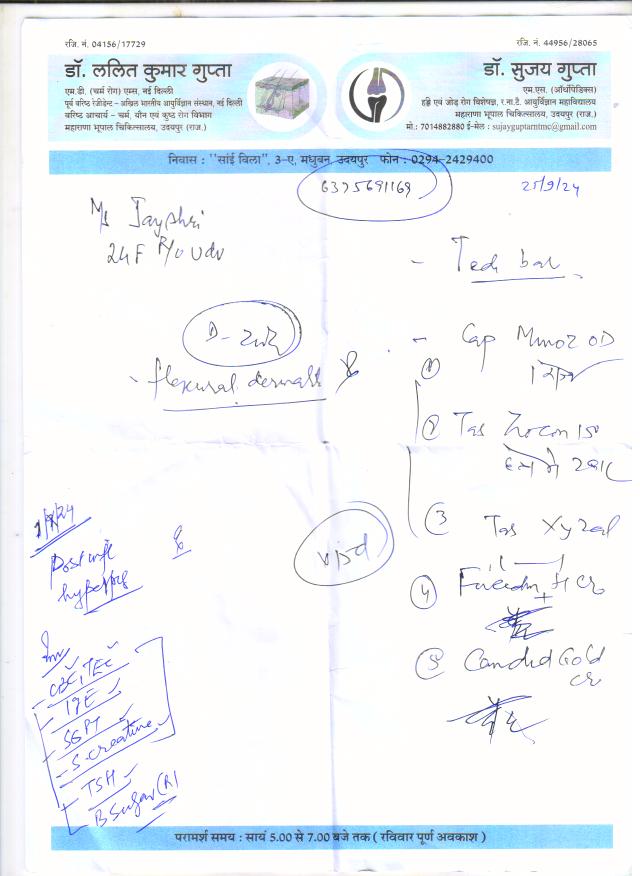 रजि. नं. 04156/17729
रजि. नं. 44956/28065
डॉ. ललित कुमार गुप्ता
एम.डी. (चर्म रोग) एम्स, नई दिल्ली
पूर्व वरिष्ठ रेजीडेन्ट – अखिल भारतीय आयुर्विज्ञान संस्थान, नई दिल्ली
वरिष्ठ आचार्य – चर्म, यौन एवं कुष्ठ रोग विभाग
महाराणा भूपाल चिकित्सालय, उदयपुर (राज.)
डॉ. सुजय गुप्ता
एम.एस. (ऑर्थोपेडिक्स)
हड्डी एवं जोड़ रोग विशेषज्ञ, र.ना.टै. आयुर्विज्ञान महाविद्यालय
महाराणा भूपाल चिकित्सालय, उदयपुर (राज.)
मो.: 7014882880 ई-मेल : sujayguptarntmc@gmail.com
निवास : "सांई विला", 3-ए, मधुबन, उदयपुर फोन : 0294-2429400
6375691169
25/9/24
Ms Jayshri
24F R/o Udr
- flexural dermatt
- Tedi bar
- ① Cap Minoz OD
② Tab Zocon 150
③ Tab Xyzal
④ Fucidin H Cr
⑤ Candid Gold
cr
Post infl
hyperpig
Inv
CBC, TEC
IgE
SGPT
S. creatine
TSH
B Sugar (R)
परामर्श समय : सायं 5.00 से 7.00 बजे तक ( रविवार पूर्ण अवकाश )